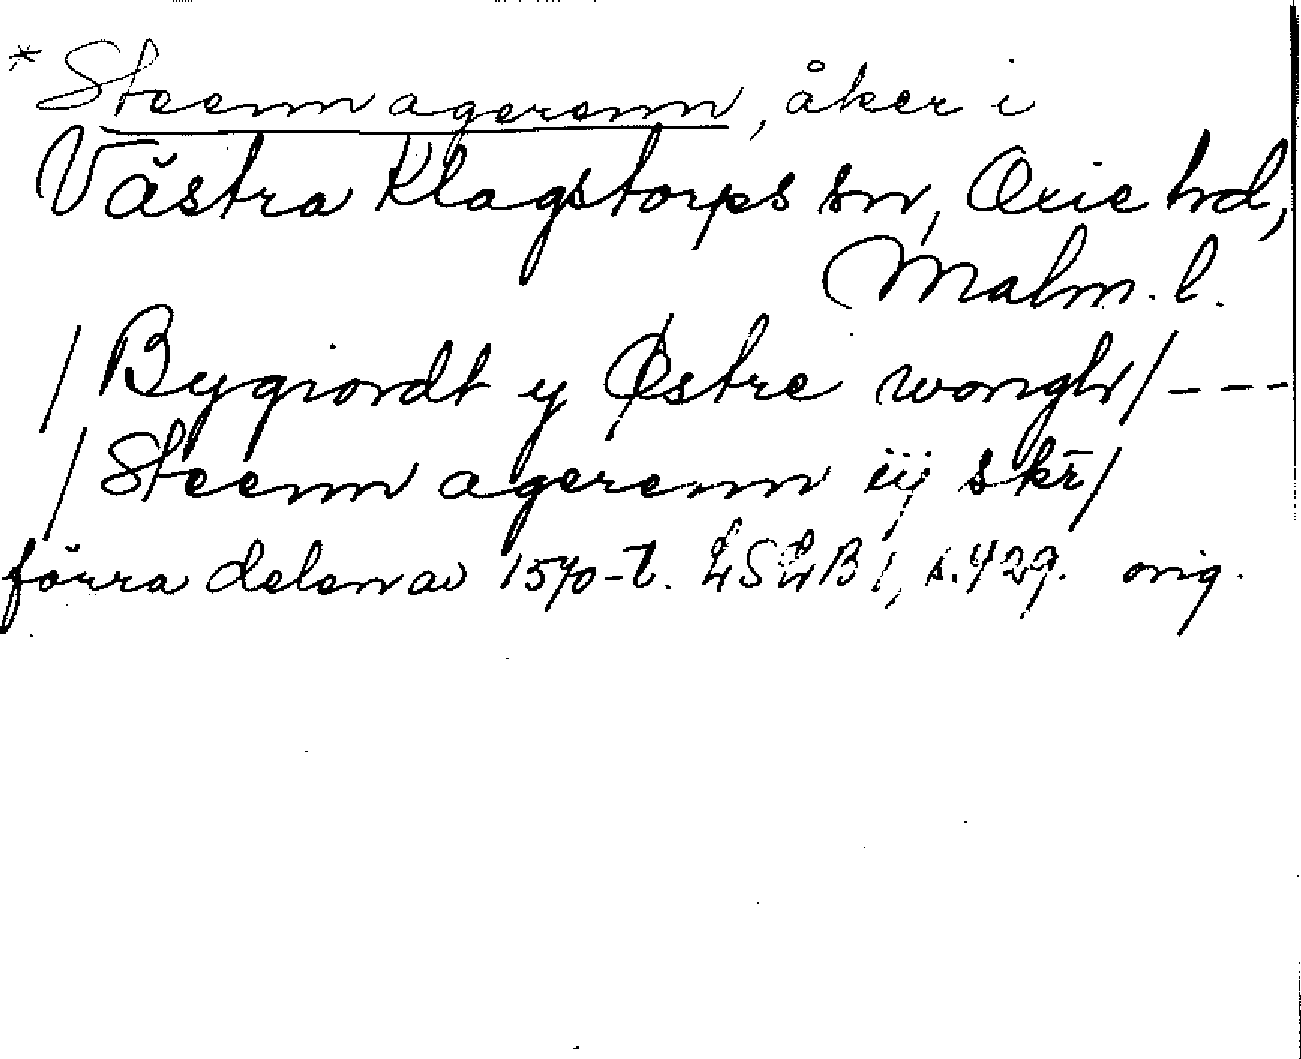 * Steenn agerenn, åker i
Västra Klagstorps sn, Oxie hd,
Malm. l.
/ Bygiordt y Østre wongh / - - -
/ Steenn agerenn iij skr̄ /
förra delen av 1570-t. LSLB 1, s. 429. orig.